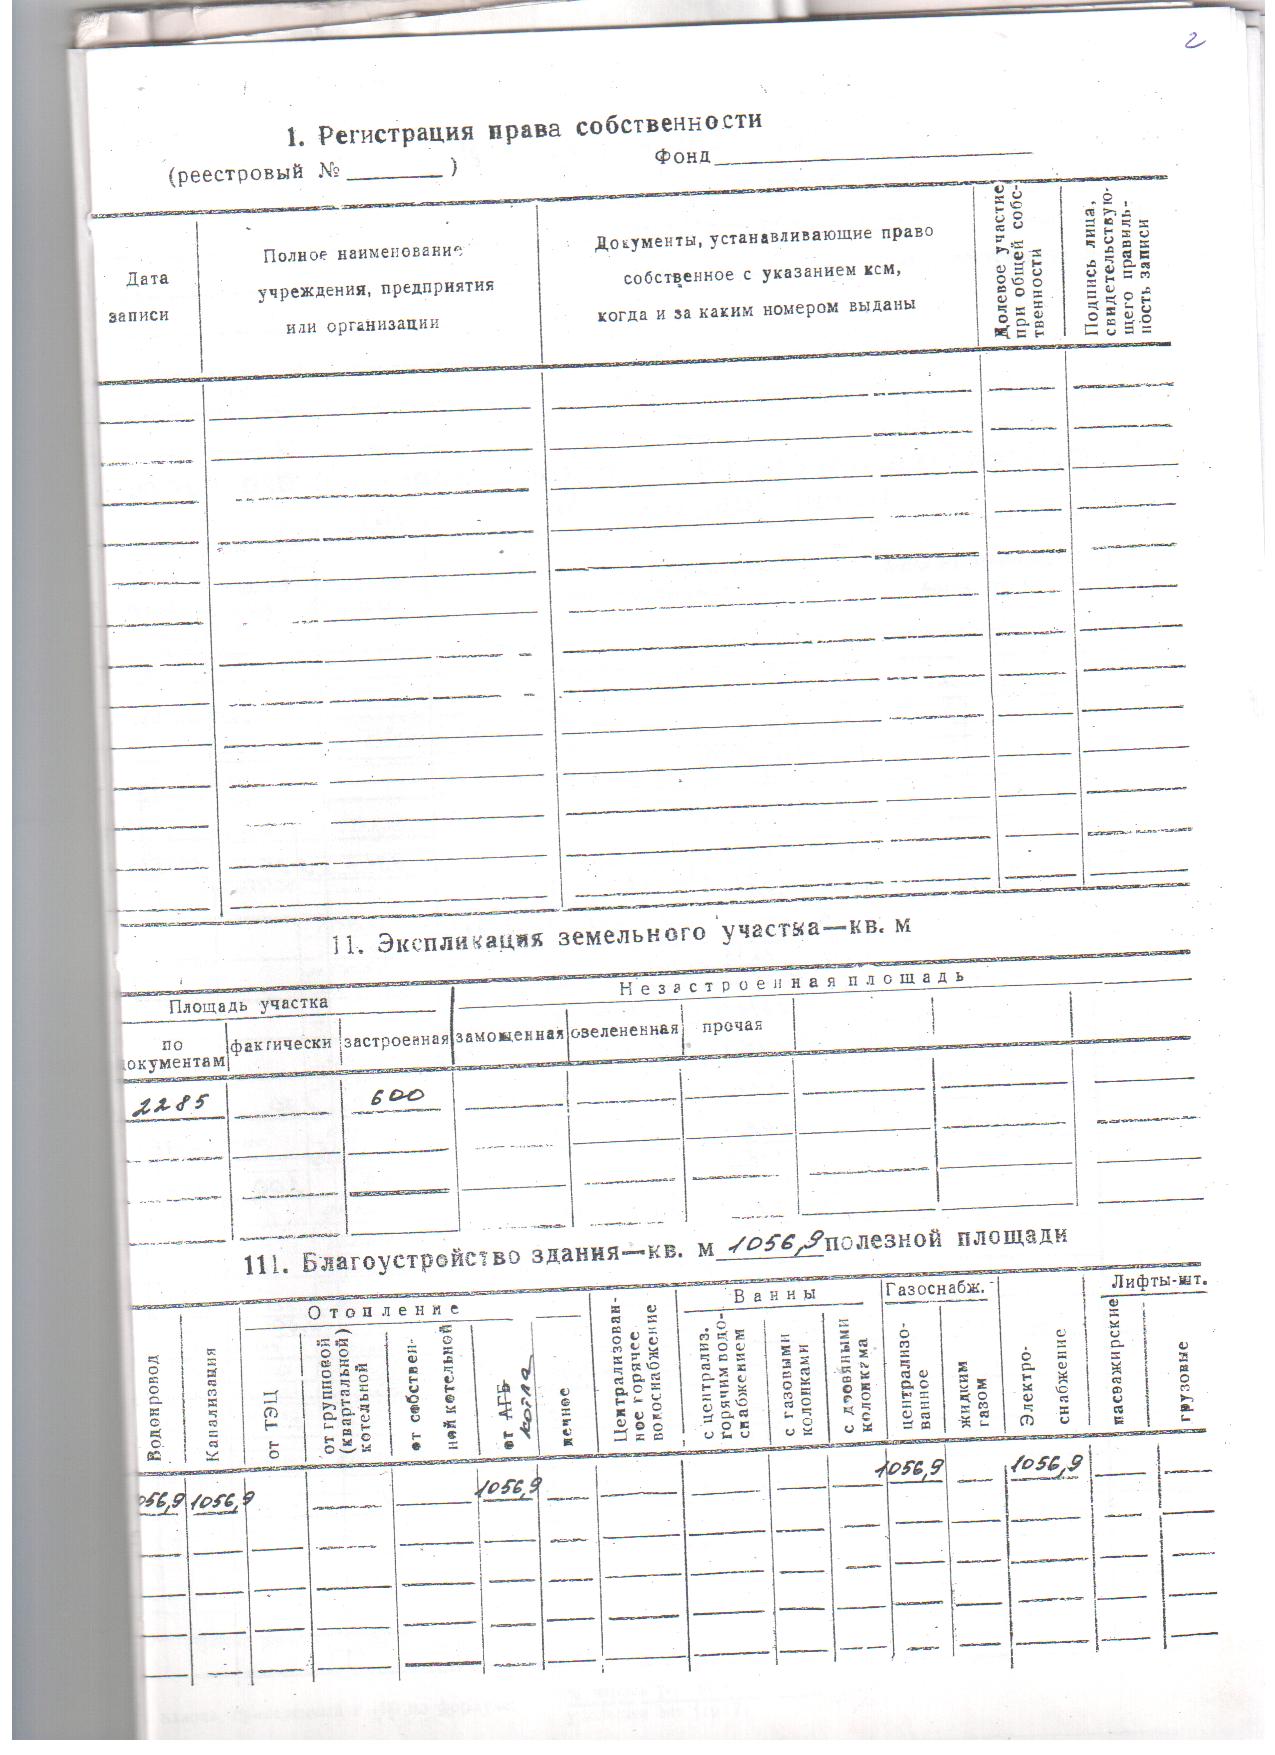 2
1. Регистрация права собственности
(реестровый № ________ ) Фонд
Дата записи
Полное наименование
учреждения, предприятия
или организации
Документы, устанавливающие право
собственное с указанием ксм,
когда и за каким номером выданы
Долевое участие
при общей собс-
твенности
Подпись лица,
свидетельствую-
щего правиль-
ность записи
11. Экспликация земельного участка—кв. м
Площадь участка
Незастроенная площадь
по
документам
фактически
застроенная
замощенная
озелененная
прочая
2285
600
111. Благоустройство здания—кв. м 1056,9 полезной площади
Водопровод
Канализация
Отопление
от ТЭЦ
от групповой
(квартальной)
котельной
от собствен-
ной котельной
от АГВ
котла
печное
Централизован-
ное горячее
водоснабжение
Ванны
с централиз.
горячим водо-
снабжением
с газовыми
колонками
с дровяными
колонкама
Газоснабж.
централизо-
ванное
жидким
газом
Электро-
снабжение
Лифты-шт.
пасажирские
грузовые
056,9
1056,9
1056,9
1056,9
1056,9